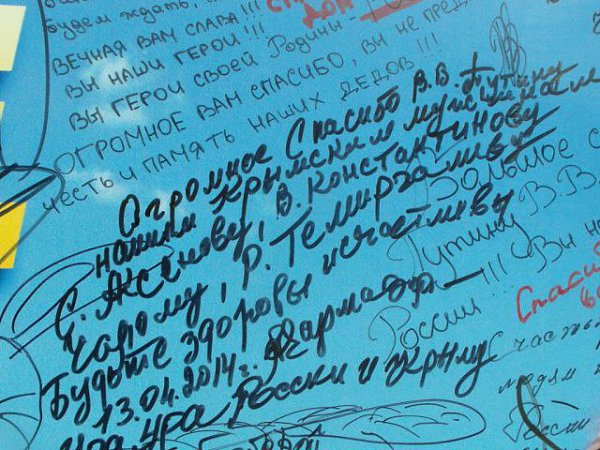 будем ждать,
ВЕЧНАЯ ВАМ СЛАВА!!!
ВЫ НАШИ ГЕРОИ!!!
ВЫ ГЕРОИ СВОЕЙ Родины
ОГРОМНОЕ ВАМ СПАСИБО, ВЫ НЕ ПРЕД
ЧЕСТЬ И ПАМЯТЬ НАШИХ ДЕДОВ!!!
Огромное Спасибо В.В. Путину
нашим Крымским мужчинам
С. Аксёнову, В. Константинову
Чалому, Р. Темиргалиеву
Будьте здоровы и счастливы
13.04.2014г.
Ура, ура России и Крыму
Большое с
Путину В.В.
России!!! Вы на
Спасибо
счастья
людям
России